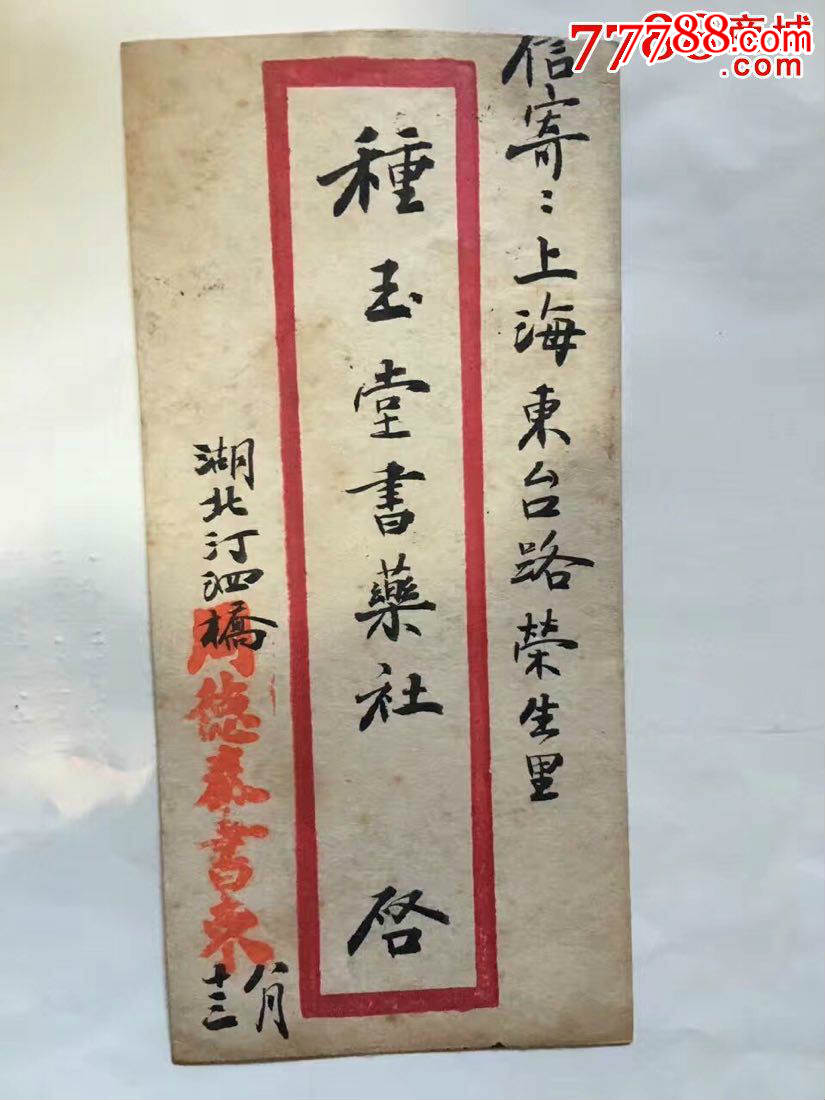 信寄：上海東台路荣生里
種玉堂書藥社 啓
湖北汀泗橋
周德泰書柬
八月
十三
77788.com
.com
商城